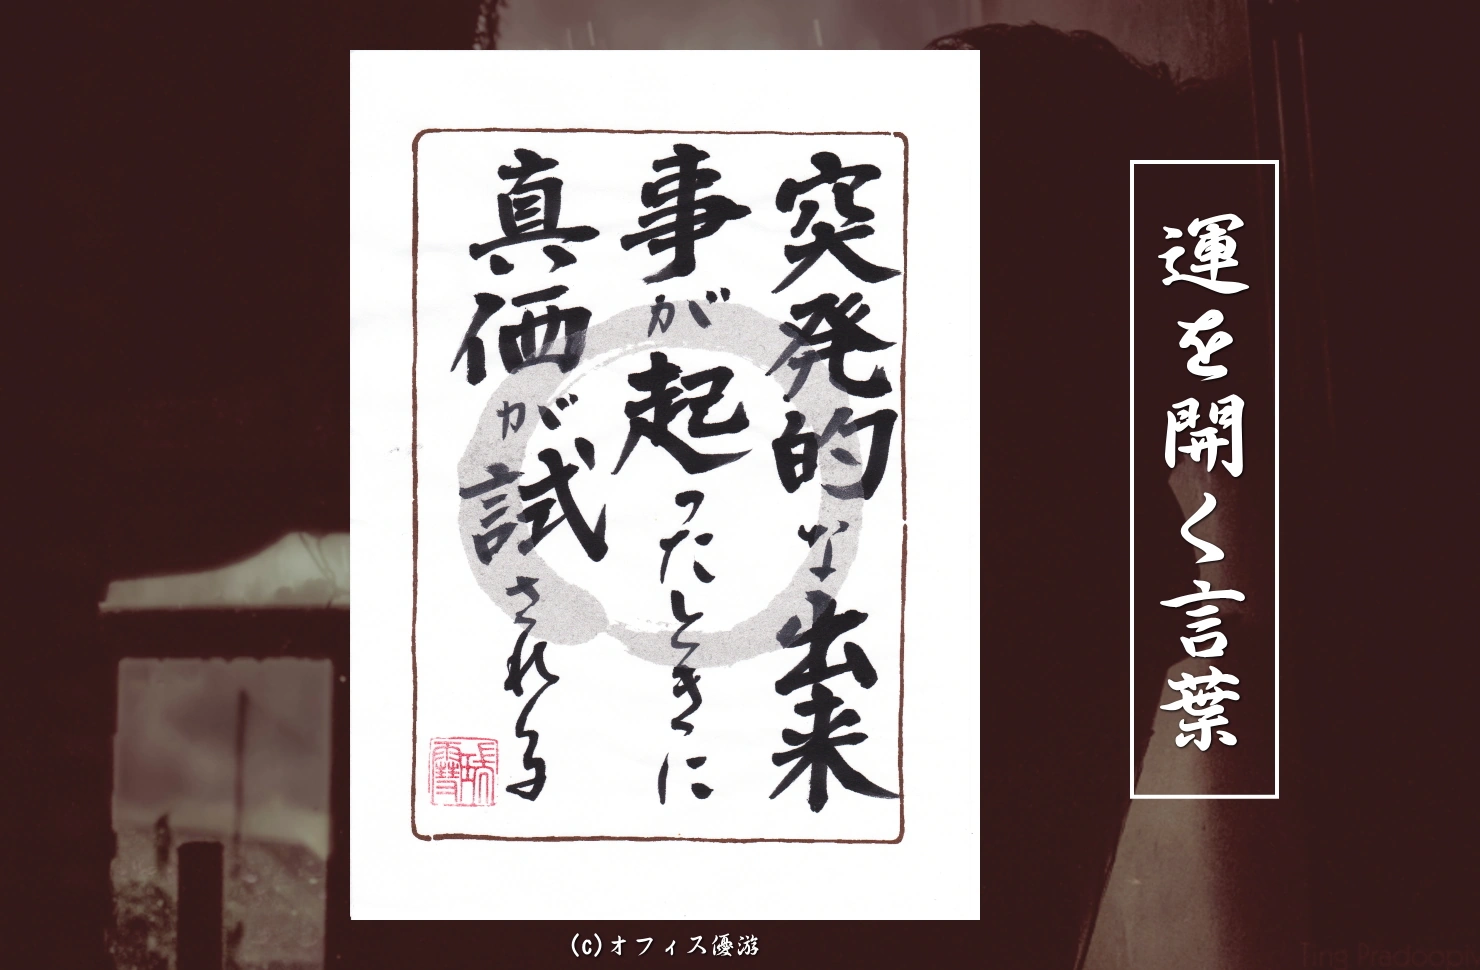 運を開く言葉
突発的な出来
事が起ったときに
真価が試される
(c)オフィス優游